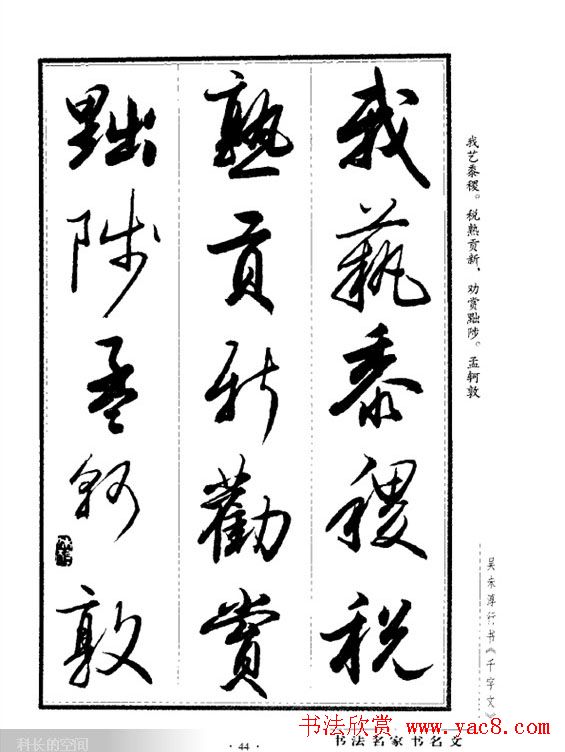 我藝黍稷税
熟貢新勸賞
黜陟孟軻敦
我艺黍稷。税熟贡新，劝赏黜陟。孟轲敦
吴未淳行书《千字文》
书法欣赏 www.yac8.com
科长的空间
· 44 ·
书法名家书名文